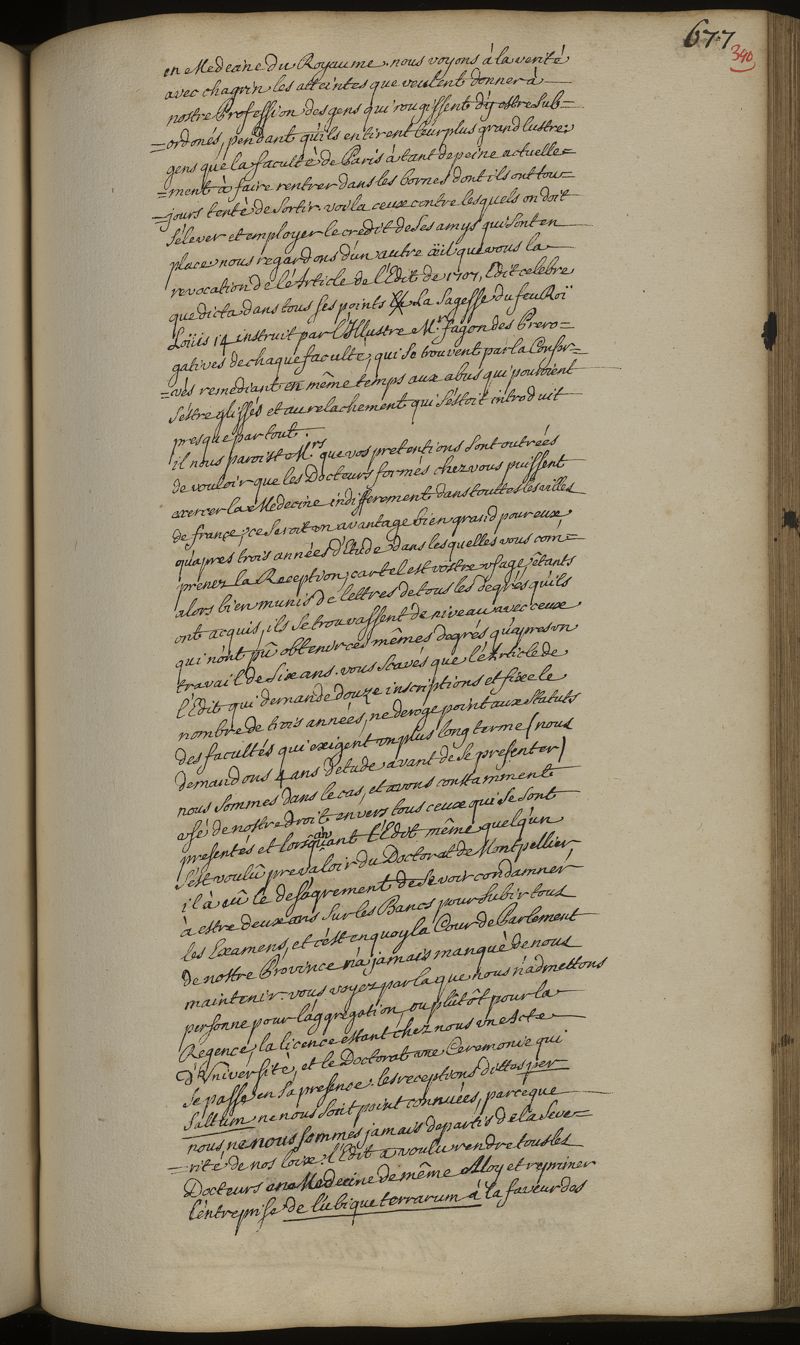 677
340
en Medecine du Royaume. nous voyons á la verité
avec chagrin les atteintes que veulent donner à
nostre Profession des gens qui rougissent d'ÿ estre sub=
=ordonés, pendant qu'ils en tirent leur plus grand lustre;
gens que la faculté de Paris à tant de peine actuelle=
=ment à faire rentrer dans les bornes dont ils ont tou=
=jours tenté de sortir. voila ceux contre lesquels on doit
s'élever et employer le credit de ses amys qui sont en
place. nous regardons d'un autre œil que vous la
revocation de l'Article de l'Edit de 1707, Edit celebre
que dicta dans tous ses points la Sagesse du feu Roï
Loüis 14 instruit par l'Illustre Mr. fagon des Prero=
gatives de chaque faculté, qui se trouvent par la Conser=
=vés remediant en même temps aux abus qui pouvoient
s'éstre glissés et au relachement qui s'éstoit introduit
presque par tout.
il nous paroist Mrs. que vos pretentions sont outrées
de vouloir que les Docteurs formes chez vous puissent
exercer la Medecine indifferement dans touttes les villes
de france; ce seroit un avantage bien grand pour eux
qu'apres trois années d'Etude dans lesquelles vous com=
prenez la Reception, car tel est vostre usage, étants
alors bien munis de lettres de tous les degrés qu'ils
ont acquis, ils se trouvassent de niveau avec ceux
qui n'ont pû obtenir ces mêmes degrés qu'apres un
travail de six ans. vous scavés que l'Article de
l'Edit qui demande douze inscriptions et fixe le
nombre de trois années, ne deroge point aux statuts
des facultés qui exigent un plus long terme (nous
demandons 4 ans d'etude avant de se presenter)
nous sommes dans le cas, et avons constamment
usé de nostre droit envers tous ceux qui se sont
presentés et lors qu'avant l'Edit même quelqu'un
s'est voulû prevaloir du Doctorat de Montpellier
il à eû le desagrement de se voir condamner
à estre deux ans sur les Bancs pour subir tous
les Examens, et c'est en quoy la Cour de Parlement
de nostre Province n'à jamais manqué de nous
maintenir. vous voyez par la que nous n'admettons
personne pour l'aggregation, ou plûtôt pour la
Regence, la licence estant chez nous une Acte
d'Université, et le Doctorat une Ceremonie qui
se passe en sa presence. les receptions dittes per
saltum ne nous sont point connuées, parcèque
nous ne nous sommes jamais departis de la seve=
=rité de nos loix. l'Edit a voulu rendre tous les
Docteurs en Medecine de même Alloy et reprimer
l'entreprise de l'ubique terrarum à la faveur des